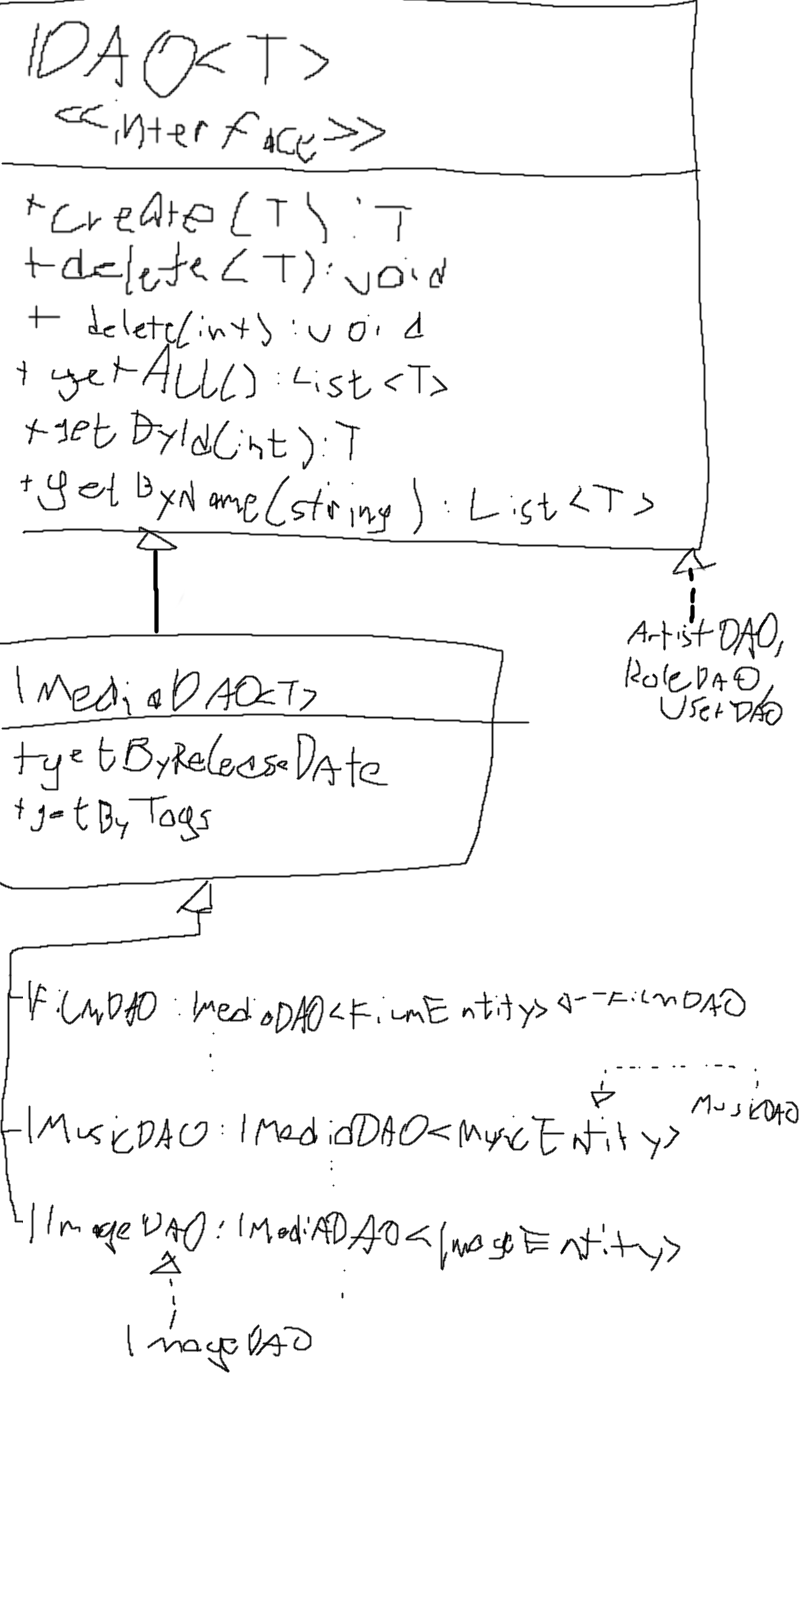 IDAO<T>
<<interface>>
+create(T):T
+delete(T):void
+ delete(int):void
+ getAll():List<T>
+getById(int):T
+getByName(string):List<T>
ArtistDAO,
RoleDAO,
UserDAO
IMediaDAO<T>
+getByReleaseDate
+getByTags
IFilmDAO:IMediaDAO<FilmEntity> FilmDAO
MusicDAO
IMusicDAO:IMediaDAO<MusicEntity>
IImageDAO:IMediaDAO<ImageEntity>
ImageDAO